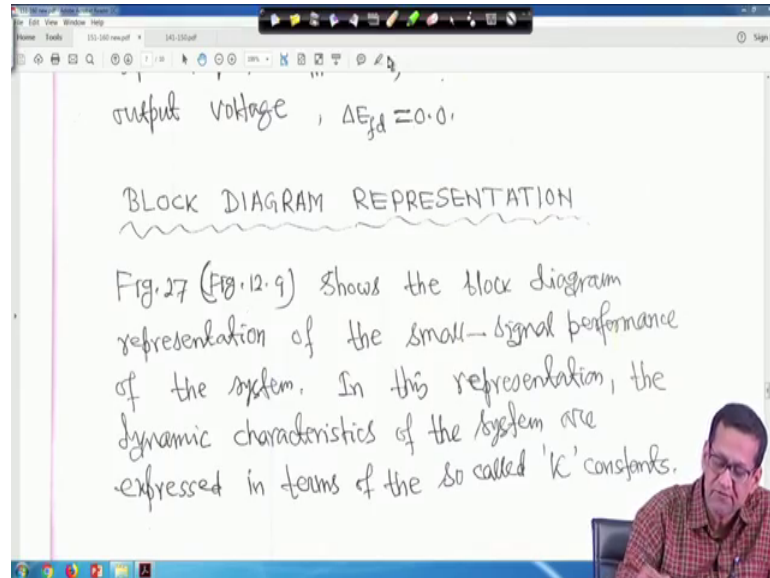 151-160 new.pdf - Adobe Acrobat Reader DC
File Edit View Window Help
Home Tools 151-160 new.pdf × 141-150.pdf Sign
output voltage, ΔE_fd = 0.0.
BLOCK DIAGRAM REPRESENTATION
Fig. 27 (Fig. 12.9) shows the block diagram
representation of the small-signal performance
of the system. In this representation, the
dynamic characteristics of the system are
expressed in terms of the so called 'K' constants.